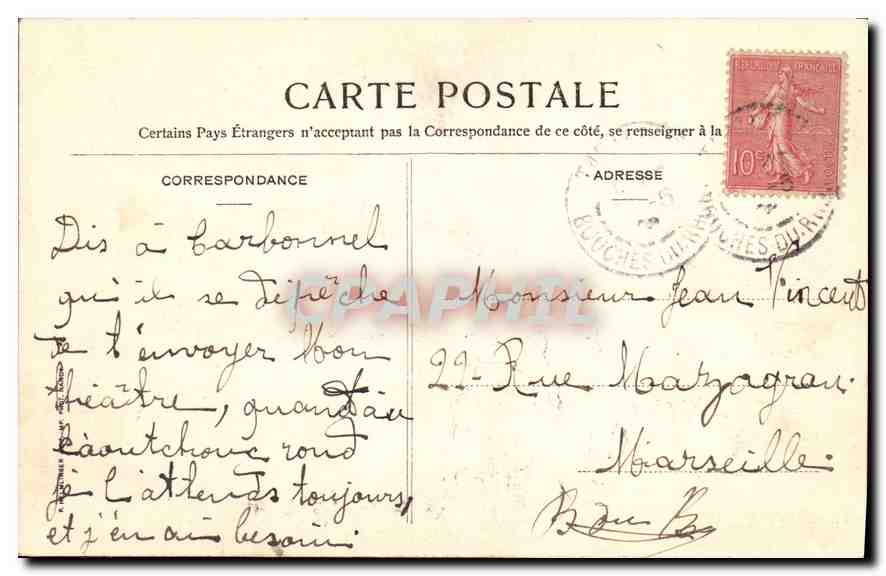 CARTE POSTALE
Certains Pays Étrangers n'acceptant pas la Correspondance de ce côté, se renseigner à la
CORRESPONDANCE
Dis à Carbonnel
qu'il se dépêche
de t'envoyer Mon
théâtre, quand au
Caoutchouc rond
je l'attends toujours,
et j'en ai besoin.
ADRESSE
Monsieur Jean Vincent
22 - Rue Mazagran.
Marseille.
B du R
REPUBLIQUE FRANÇAISE
10
BOUCHES-DU-RH
BOUCHES-DU-RH
CPAPHIL